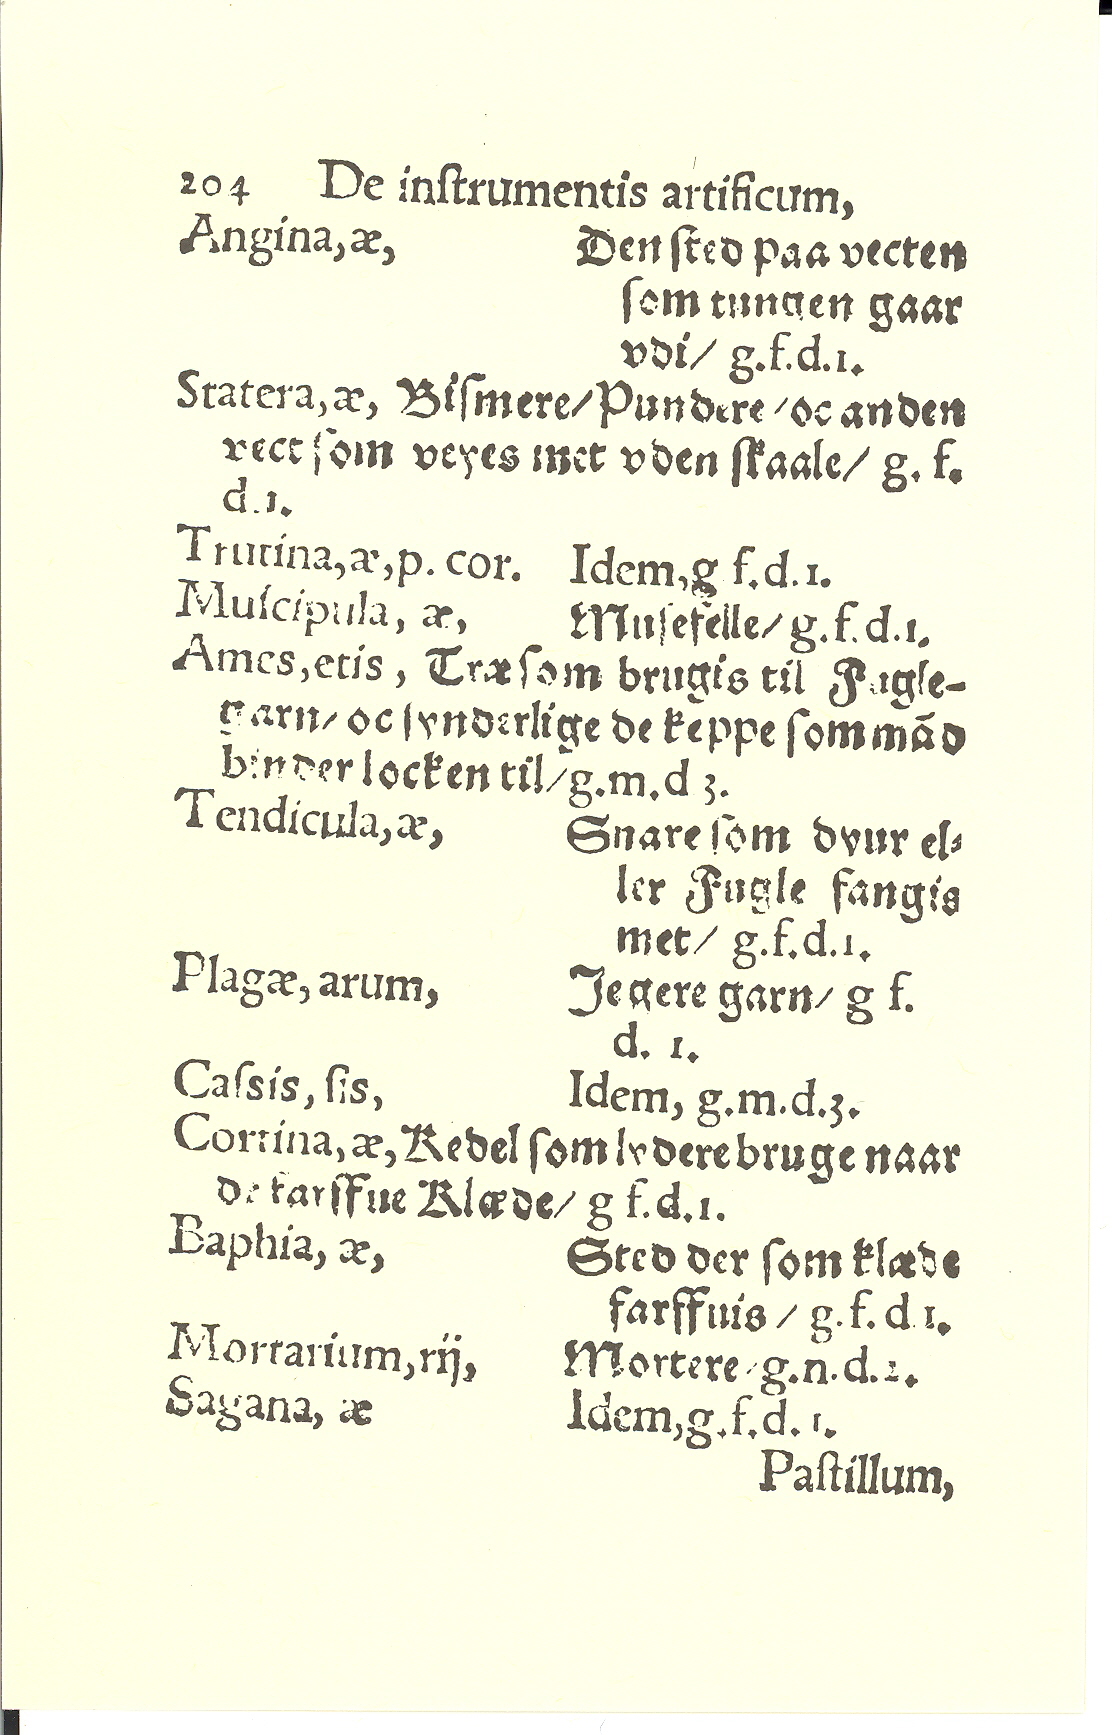 204 De inſtrumentis artificum,
Angina, æ, Den ſted paa vecten
ſom tungen gaar
vdi/ g.f.d.1.
Statera, æ, Biſmere/Pundere/oc anden
vect ſom veyes met vden ſkaale/ g. f.
d.1.
Trutina, æ, p. cor. Idem, g f.d.1.
Muſcipula, æ, Muſefelle/ g.f.d.1.
Ames, etis, Træ ſom brugis til Fugle-
garn/ oc ſynderlige de keppe ſom mãd
binder locken til/g.m.d 3.
Tendicula, æ, Snare ſom dyur el-
ler Fugle fangis
met/ g.f.d.1.
Plagæ, arum, Jegere garn/ g f.
d. 1.
Caſsis, ſis, Idem, g.m.d.3.
Cortina, æ, Kedel ſom lydere bruge naar
de farffue Klæde/ g f.d.1.
Baphia, æ, Sted der ſom klæde
farffuis / g.f.d 1.
Mortarium, rij, Mortere/g.n.d.2.
Sagana, æ Idem,g.f.d.1.
Paſtillum,